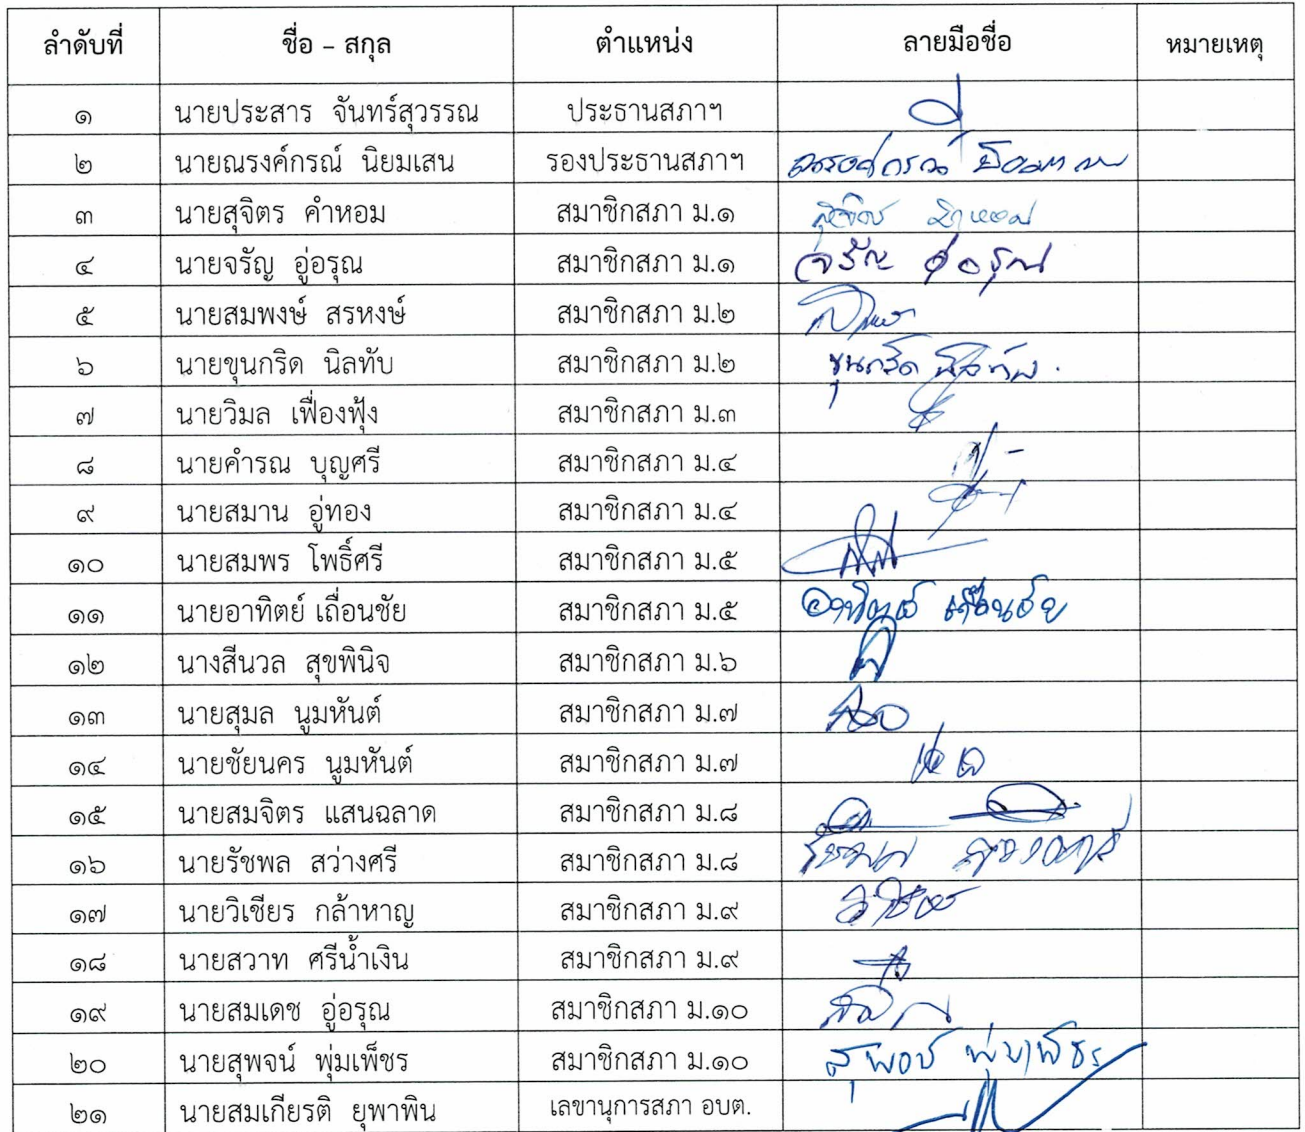 ลำดับที่ ชื่อ - สกุล ตำแหน่ง ลายมือชื่อ หมายเหตุ
๑ นายประสาร จันทร์สุวรรณ ประธานสภาฯ
๒ นายณรงค์กรณ์ นิยมเสน รองประธานสภาฯ
๓ นายสุจิตร คำหอม สมาชิกสภา ม.๑ สุจิตร คำหอม
๔ นายจรัญ อู่อรุณ สมาชิกสภา ม.๑ จรัญ อู่อรุณ
๕ นายสมพงษ์ สรหงษ์ สมาชิกสภา ม.๒
๖ นายขุนกริด นิลทับ สมาชิกสภา ม.๒ ขุนกริด นิลทับ
๗ นายวิมล เฟื่องฟุ้ง สมาชิกสภา ม.๓
๘ นายคำรณ บุญศรี สมาชิกสภา ม.๔
๙ นายสมาน อู่ทอง สมาชิกสภา ม.๔
๑๐ นายสมพร โพธิ์ศรี สมาชิกสภา ม.๕
๑๑ นายอาทิตย์ เถื่อนชัย สมาชิกสภา ม.๕ อาทิตย์ เถื่อนชัย
๑๒ นางสีนวล สุขพินิจ สมาชิกสภา ม.๖
๑๓ นายสุมล นูมหันต์ สมาชิกสภา ม.๗
๑๔ นายชัยนคร นูมหันต์ สมาชิกสภา ม.๗
๑๕ นายสมจิตร แสนฉลาด สมาชิกสภา ม.๘
๑๖ นายรัชพล สว่างศรี สมาชิกสภา ม.๘
๑๗ นายวิเชียร กล้าหาญ สมาชิกสภา ม.๙ วิเชียร
๑๘ นายสวาท ศรีน้ำเงิน สมาชิกสภา ม.๙
๑๙ นายสมเดช อู่อรุณ สมาชิกสภา ม.๑๐
๒๐ นายสุพจน์ พุ่มเพ็ชร สมาชิกสภา ม.๑๐ สุพจน์ พุ่มเพ็ชร
๒๑ นายสมเกียรติ ยุพาพิน เลขานุการสภา อบต.